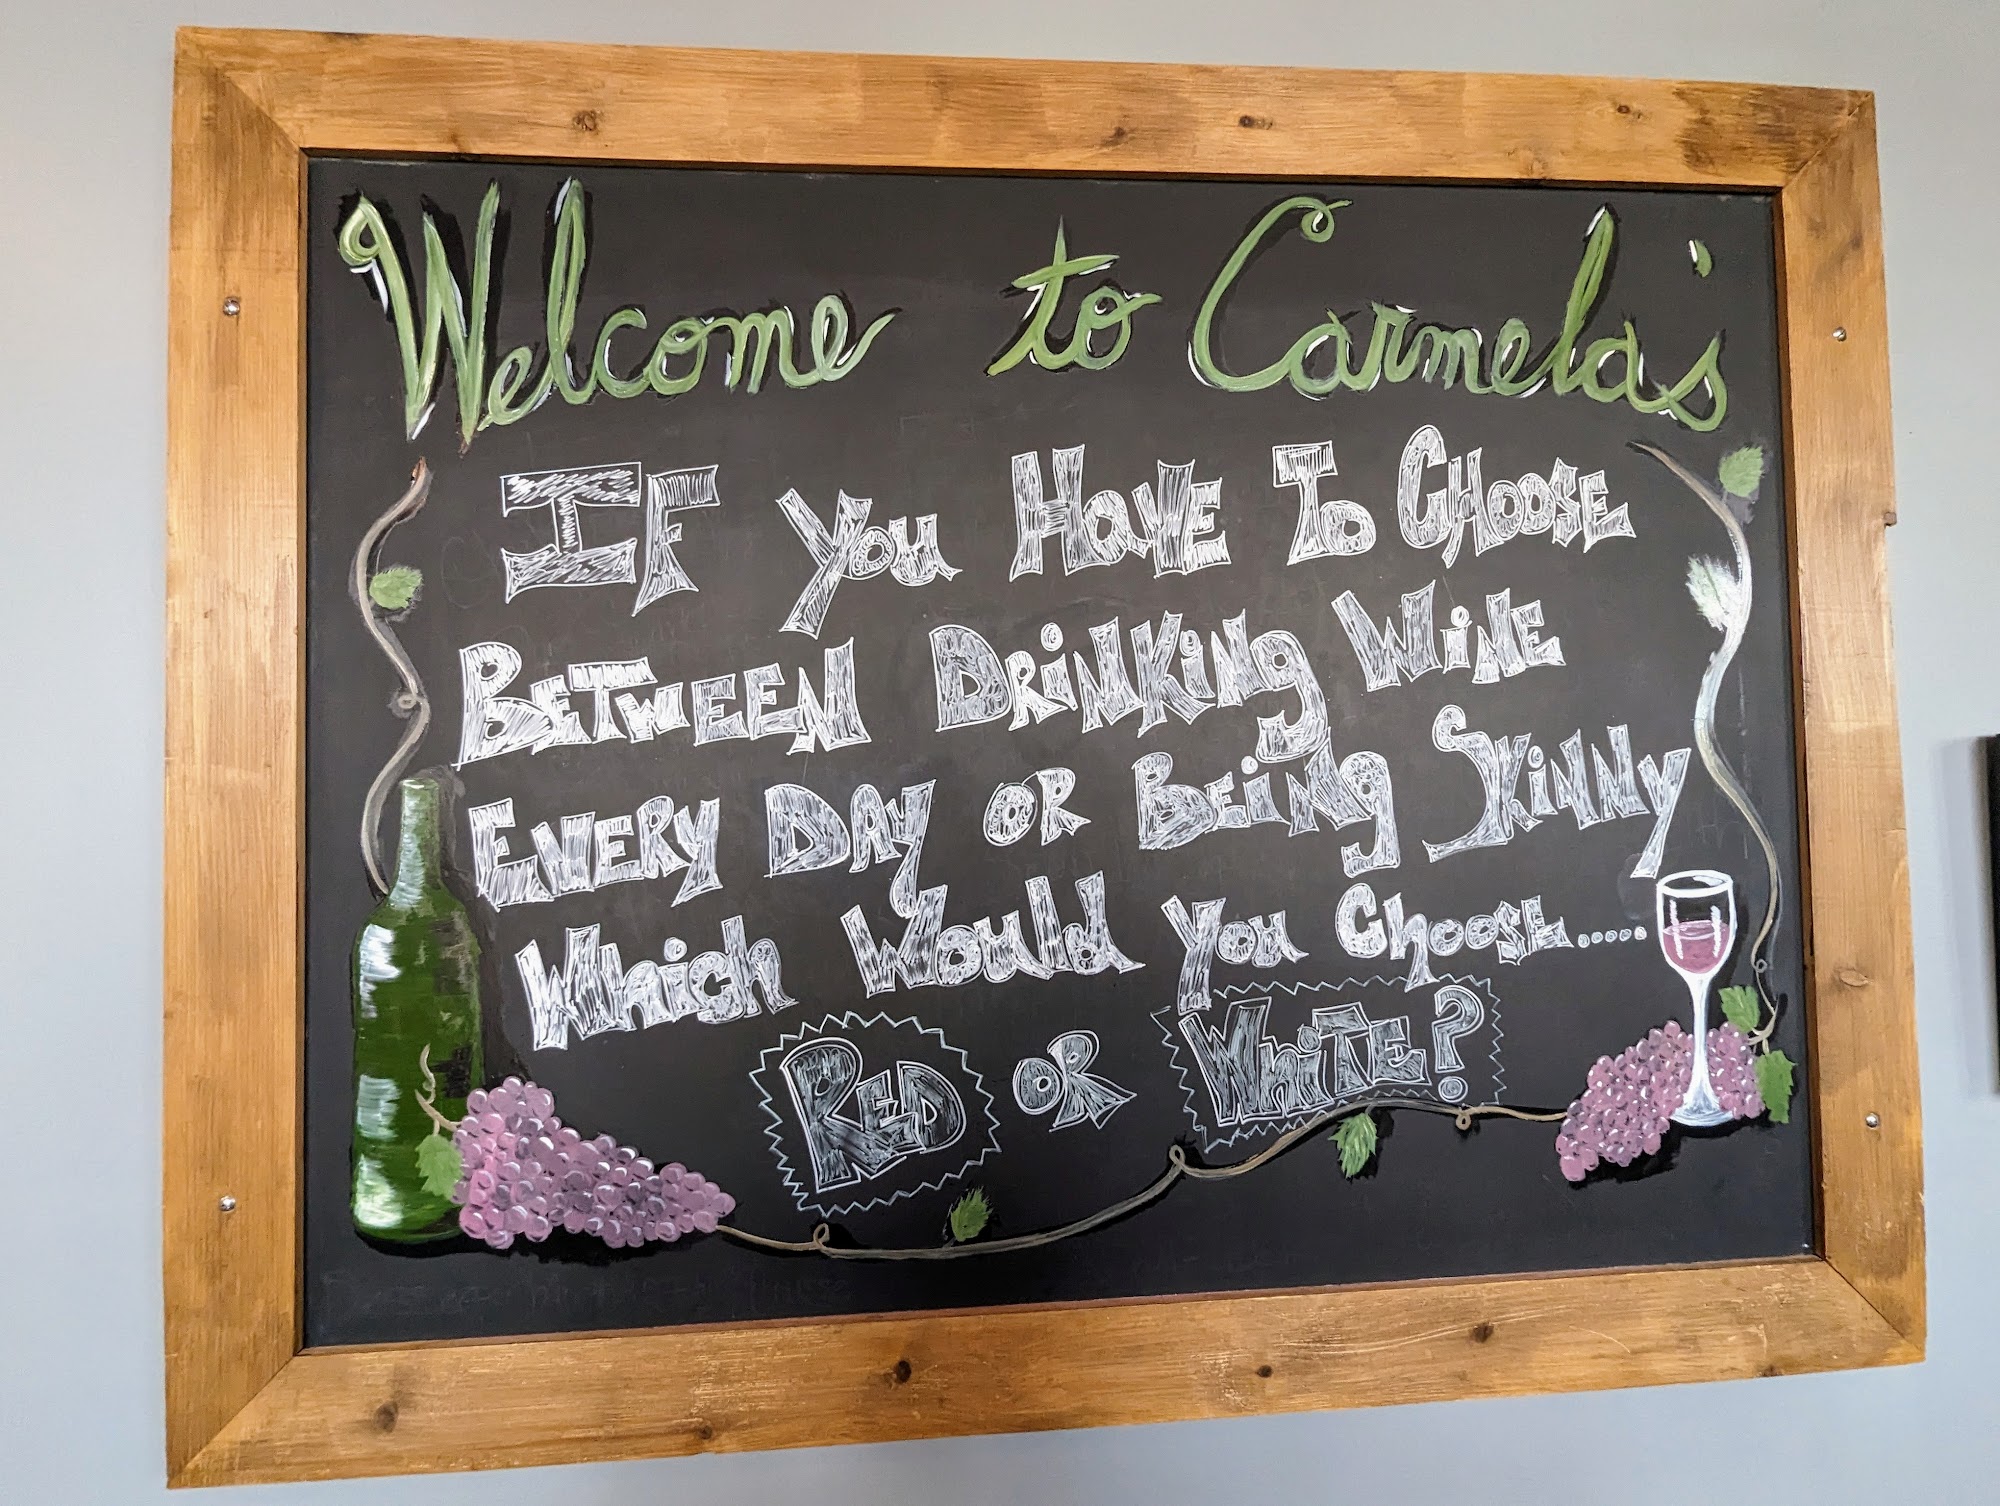 Welcome to Carmela's
IF You HavE To CHOOSE
BETWEEN DRiNKiNg WiNE
EVERY DAY OR BEiNg SKiNNy
Which Would You Choose.....
RED OR WHiTE?